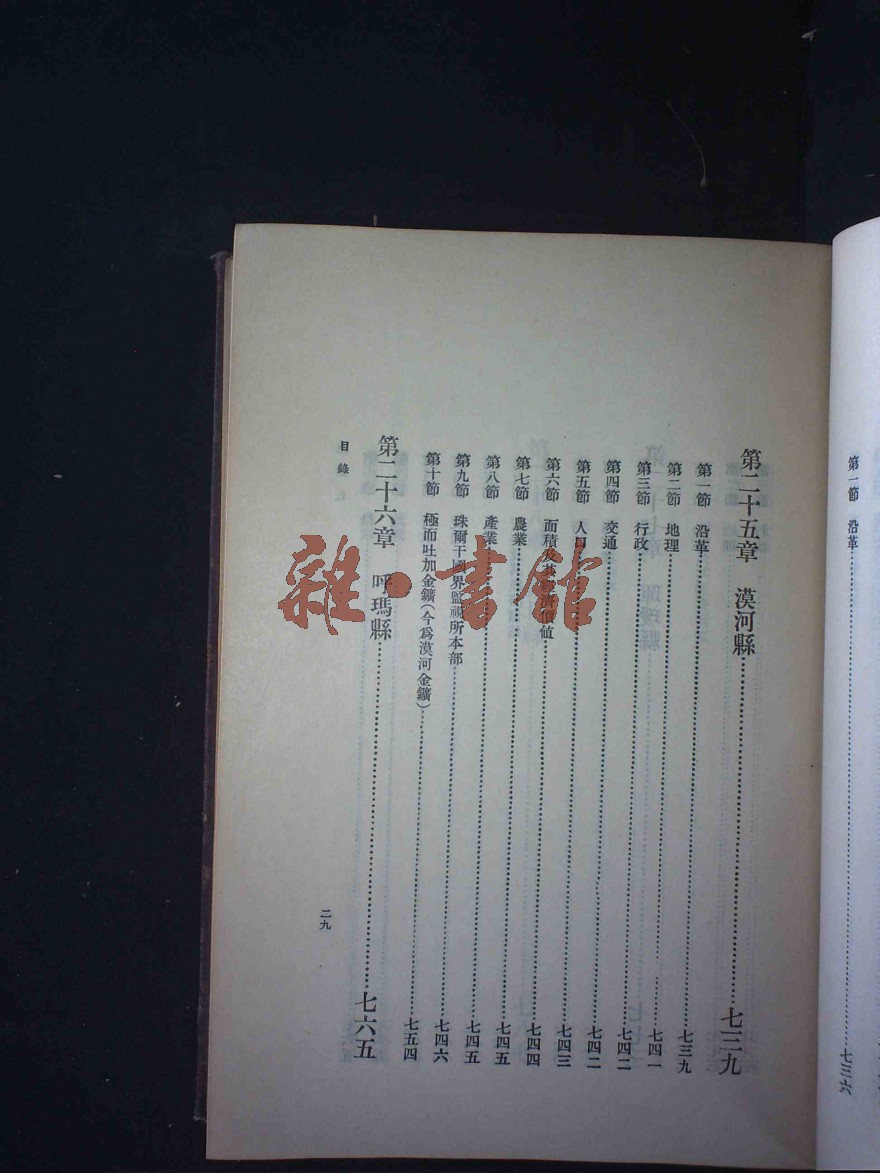 第一節 沿革……七三六
第二十五章 漠河縣……七三九
第一節 沿革……七三九
第二節 地理……七四一
第三節 行政……七四二
第四節 交通……七四二
第五節 人口……七四三
第六節 面積及其經濟價值……七四四
第七節 農業……七四五
第八節 產業……七四五
第九節 珠爾干國界監視所本部……七四六
第十節 極而吐加金鑛(今爲漠河金鑛)……七五四
第二十六章 呼瑪縣……七六五
目錄
二九
雜·書館